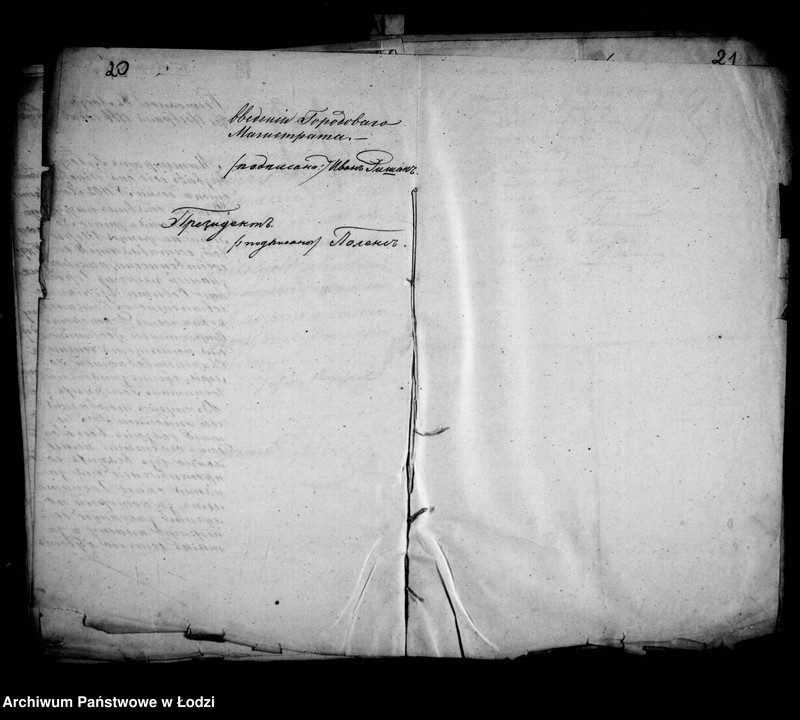 20
21
введенiи Городоваго
Магистрата. —
(подписано:) Иванъ
Президентъ
(подписано) Поленсъ.
Archiwum Państwowe w Łodzi